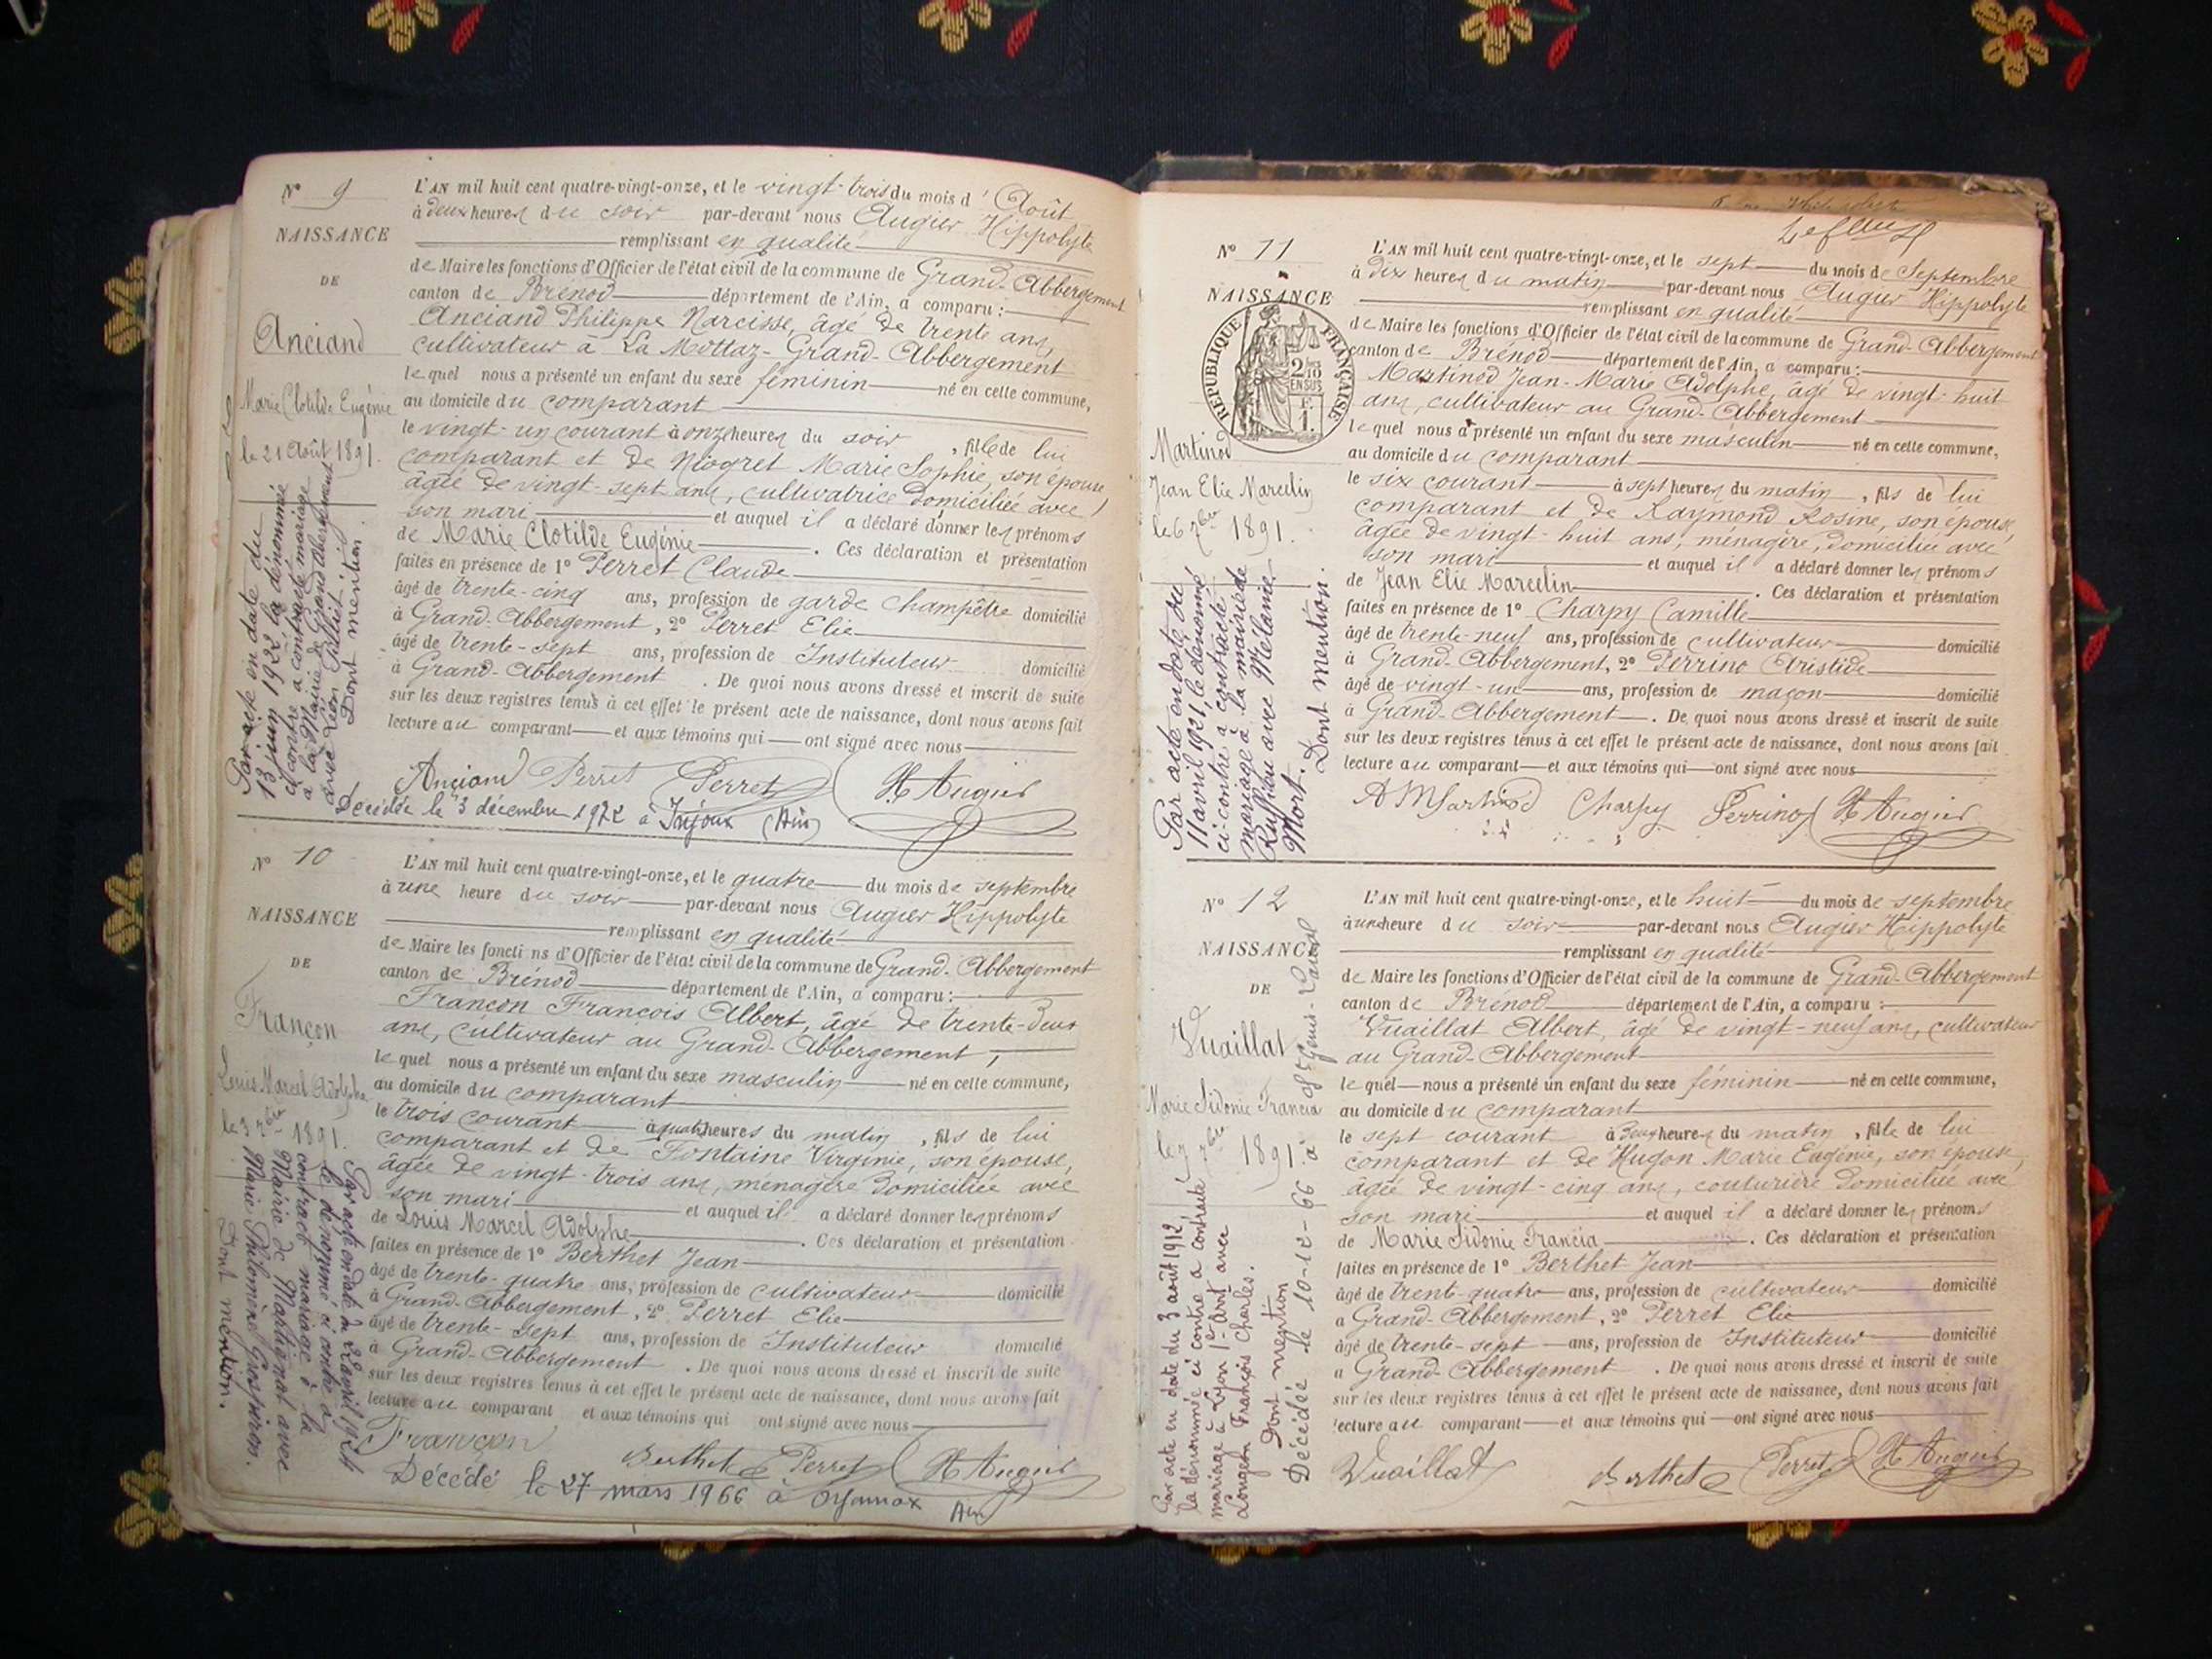 N° 9
NAISSANCE
DE
Anciand
Marie Clotilde Eugénie
le 21 Août 1891.
Par acte en date du
13 juin 1922 la dénommée
ci contre a contracté mariage
à la Mairie de Grand Abergement
avec Léon
Dont mention.
L'AN mil huit cent quatre-vingt-onze, et le vingt-trois du mois d'Août
à deux heures du soir par-devant nous Augier Hippolyte
remplissant en qualité
de Maire les fonctions d'Officier de l'état civil de la commune de Grand-Abbergement
canton de Brénod département de l'Ain, a comparu :
Anciand Philippe Narcisse, âgé de trente ans,
cultivateur à La Mottaz-Grand-Abbergement
lequel nous a présenté un enfant du sexe féminin né en cette commune,
au domicile du comparant
le vingt-un courant à onze heures du soir, fille de lui
comparant et de Niogret Marie Sophie, son épouse
âgée de vingt-sept ans, cultivatrice domiciliée avec
son mari et auquel il a déclaré donner les prénoms
de Marie Clotilde Eugénie. Ces déclaration et présentation
faites en présence de 1° Perret Claude
âgé de trente-cinq ans, profession de garde champêtre domicilié
à Grand-Abbergement, 2° Perret Elie
âgé de trente-sept ans, profession de Instituteur domicilié
à Grand-Abbergement. De quoi nous avons dressé et inscrit de suite
sur les deux registres tenus à cet effet le présent acte de naissance, dont nous avons fait
lecture au comparant et aux témoins qui ont signé avec nous
Anciand Perret Perret H Augier
Décédée le 3 décembre 1972 à Injoux (Ain)
N° 10
NAISSANCE
DE
Françon
Louis Marcel Adolphe
le 3 7bre 1891.
Par acte en date du 22 avril 1924
le dénommé ci contre a
contracté mariage à la
Mairie de Martignat avec
Marie Philomène
Dont mention.
L'AN mil huit cent quatre-vingt-onze, et le quatre du mois de septembre
à une heure du soir par-devant nous Augier Hippolyte
remplissant en qualité
de Maire les fonctions d'Officier de l'état civil de la commune de Grand-Abbergement
canton de Brénod département de l'Ain, a comparu :
Françon François Albert, âgé de trente-deux
ans, cultivateur au Grand-Abbergement,
lequel nous a présenté un enfant du sexe masculin né en cette commune,
au domicile du comparant
le trois courant à quatre heures du matin, fils de lui
comparant et de Fontaine Virginie, son épouse,
âgée de vingt-trois ans, ménagère domiciliée avec
son mari et auquel il a déclaré donner les prénoms
de Louis Marcel Adolphe. Ces déclaration et présentation
faites en présence de 1° Berthet Jean
âgé de trente-quatre ans, profession de cultivateur domicilié
à Grand-Abbergement, 2° Perret Elie
âgé de trente-sept ans, profession de Instituteur domicilié
à Grand-Abbergement. De quoi nous avons dressé et inscrit de suite
sur les deux registres tenus à cet effet le présent acte de naissance, dont nous avons fait
lecture au comparant et aux témoins qui ont signé avec nous
Françon Berthet Perret H Augier
Décédé le 27 mars 1966 à Oyonnax Ain
N° 11
NAISSANCE
RÉPUBLIQUE FRANÇAISE
2/10 EN SUS
F. 1.
Martinod
Jean Elie Marcelin
le 6 7bre 1891.
Par acte en date du
11 avril 1921, le dénommé
ci-contre a contracté
mariage à la mairie de
Ruffieu avec Mélanie
Mort. Dont mention.
L'AN mil huit cent quatre-vingt-onze, et le sept du mois de Septembre
à dix heures du matin par-devant nous Augier Hippolyte
remplissant en qualité
de Maire les fonctions d'Officier de l'état civil de la commune de Grand-Abbergement
canton de Brénod département de l'Ain, a comparu :
Martinod Jean-Marie Adolphe, âgé de vingt-huit
ans, cultivateur au Grand-Abbergement
lequel nous a présenté un enfant du sexe masculin né en cette commune,
au domicile du comparant
le six courant à sept heures du matin, fils de lui
comparant et de Raymond Rosine, son épouse,
âgée de vingt-huit ans, ménagère, domiciliée avec
son mari et auquel il a déclaré donner les prénoms
de Jean Elie Marcelin. Ces déclaration et présentation
faites en présence de 1° Charpy Camille
âgé de trente-neuf ans, profession de cultivateur domicilié
à Grand-Abbergement, 2° Perrino Aristide
âgé de vingt-un ans, profession de maçon domicilié
à Grand-Abbergement. De quoi nous avons dressé et inscrit de suite
sur les deux registres tenus à cet effet le présent acte de naissance, dont nous avons fait
lecture au comparant et aux témoins qui ont signé avec nous
A Martinod Charpy Perrino H Augier
N° 12
NAISSANCE
DE
Vuaillat
Marie Sidonie Francia
le 7 7bre 1891.
Par acte en date du 3 août 1912
la dénommée ci contre a contracté
mariage à Lyon 1er arrt avec
Longen François Charles.
Dont mention
Décédée le 10-12-66 à St Genis-Laval
L'AN mil huit cent quatre-vingt-onze, et le huit du mois de septembre
à une heure du soir par-devant nous Augier Hippolyte
remplissant en qualité
de Maire les fonctions d'Officier de l'état civil de la commune de Grand-Abbergement
canton de Brénod département de l'Ain, a comparu :
Vuaillat Albert, âgé de vingt-neuf ans, cultivateur
au Grand-Abbergement
lequel nous a présenté un enfant du sexe féminin né en cette commune,
au domicile du comparant
le sept courant à deux heures du matin, fille de lui
comparant et de Hugon Marie Eugénie, son épouse,
âgée de vingt-cinq ans, couturière domiciliée avec
son mari et auquel il a déclaré donner les prénoms
de Marie Sidonie Francia. Ces déclaration et présentation
faites en présence de 1° Berthet Jean
âgé de trente-quatre ans, profession de cultivateur domicilié
à Grand-Abbergement, 2° Perret Elie
âgé de trente-sept ans, profession de Instituteur domicilié
à Grand-Abbergement. De quoi nous avons dressé et inscrit de suite
sur les deux registres tenus à cet effet le présent acte de naissance, dont nous avons fait
lecture au comparant et aux témoins qui ont signé avec nous
Vuaillat Berthet Perret H Augier